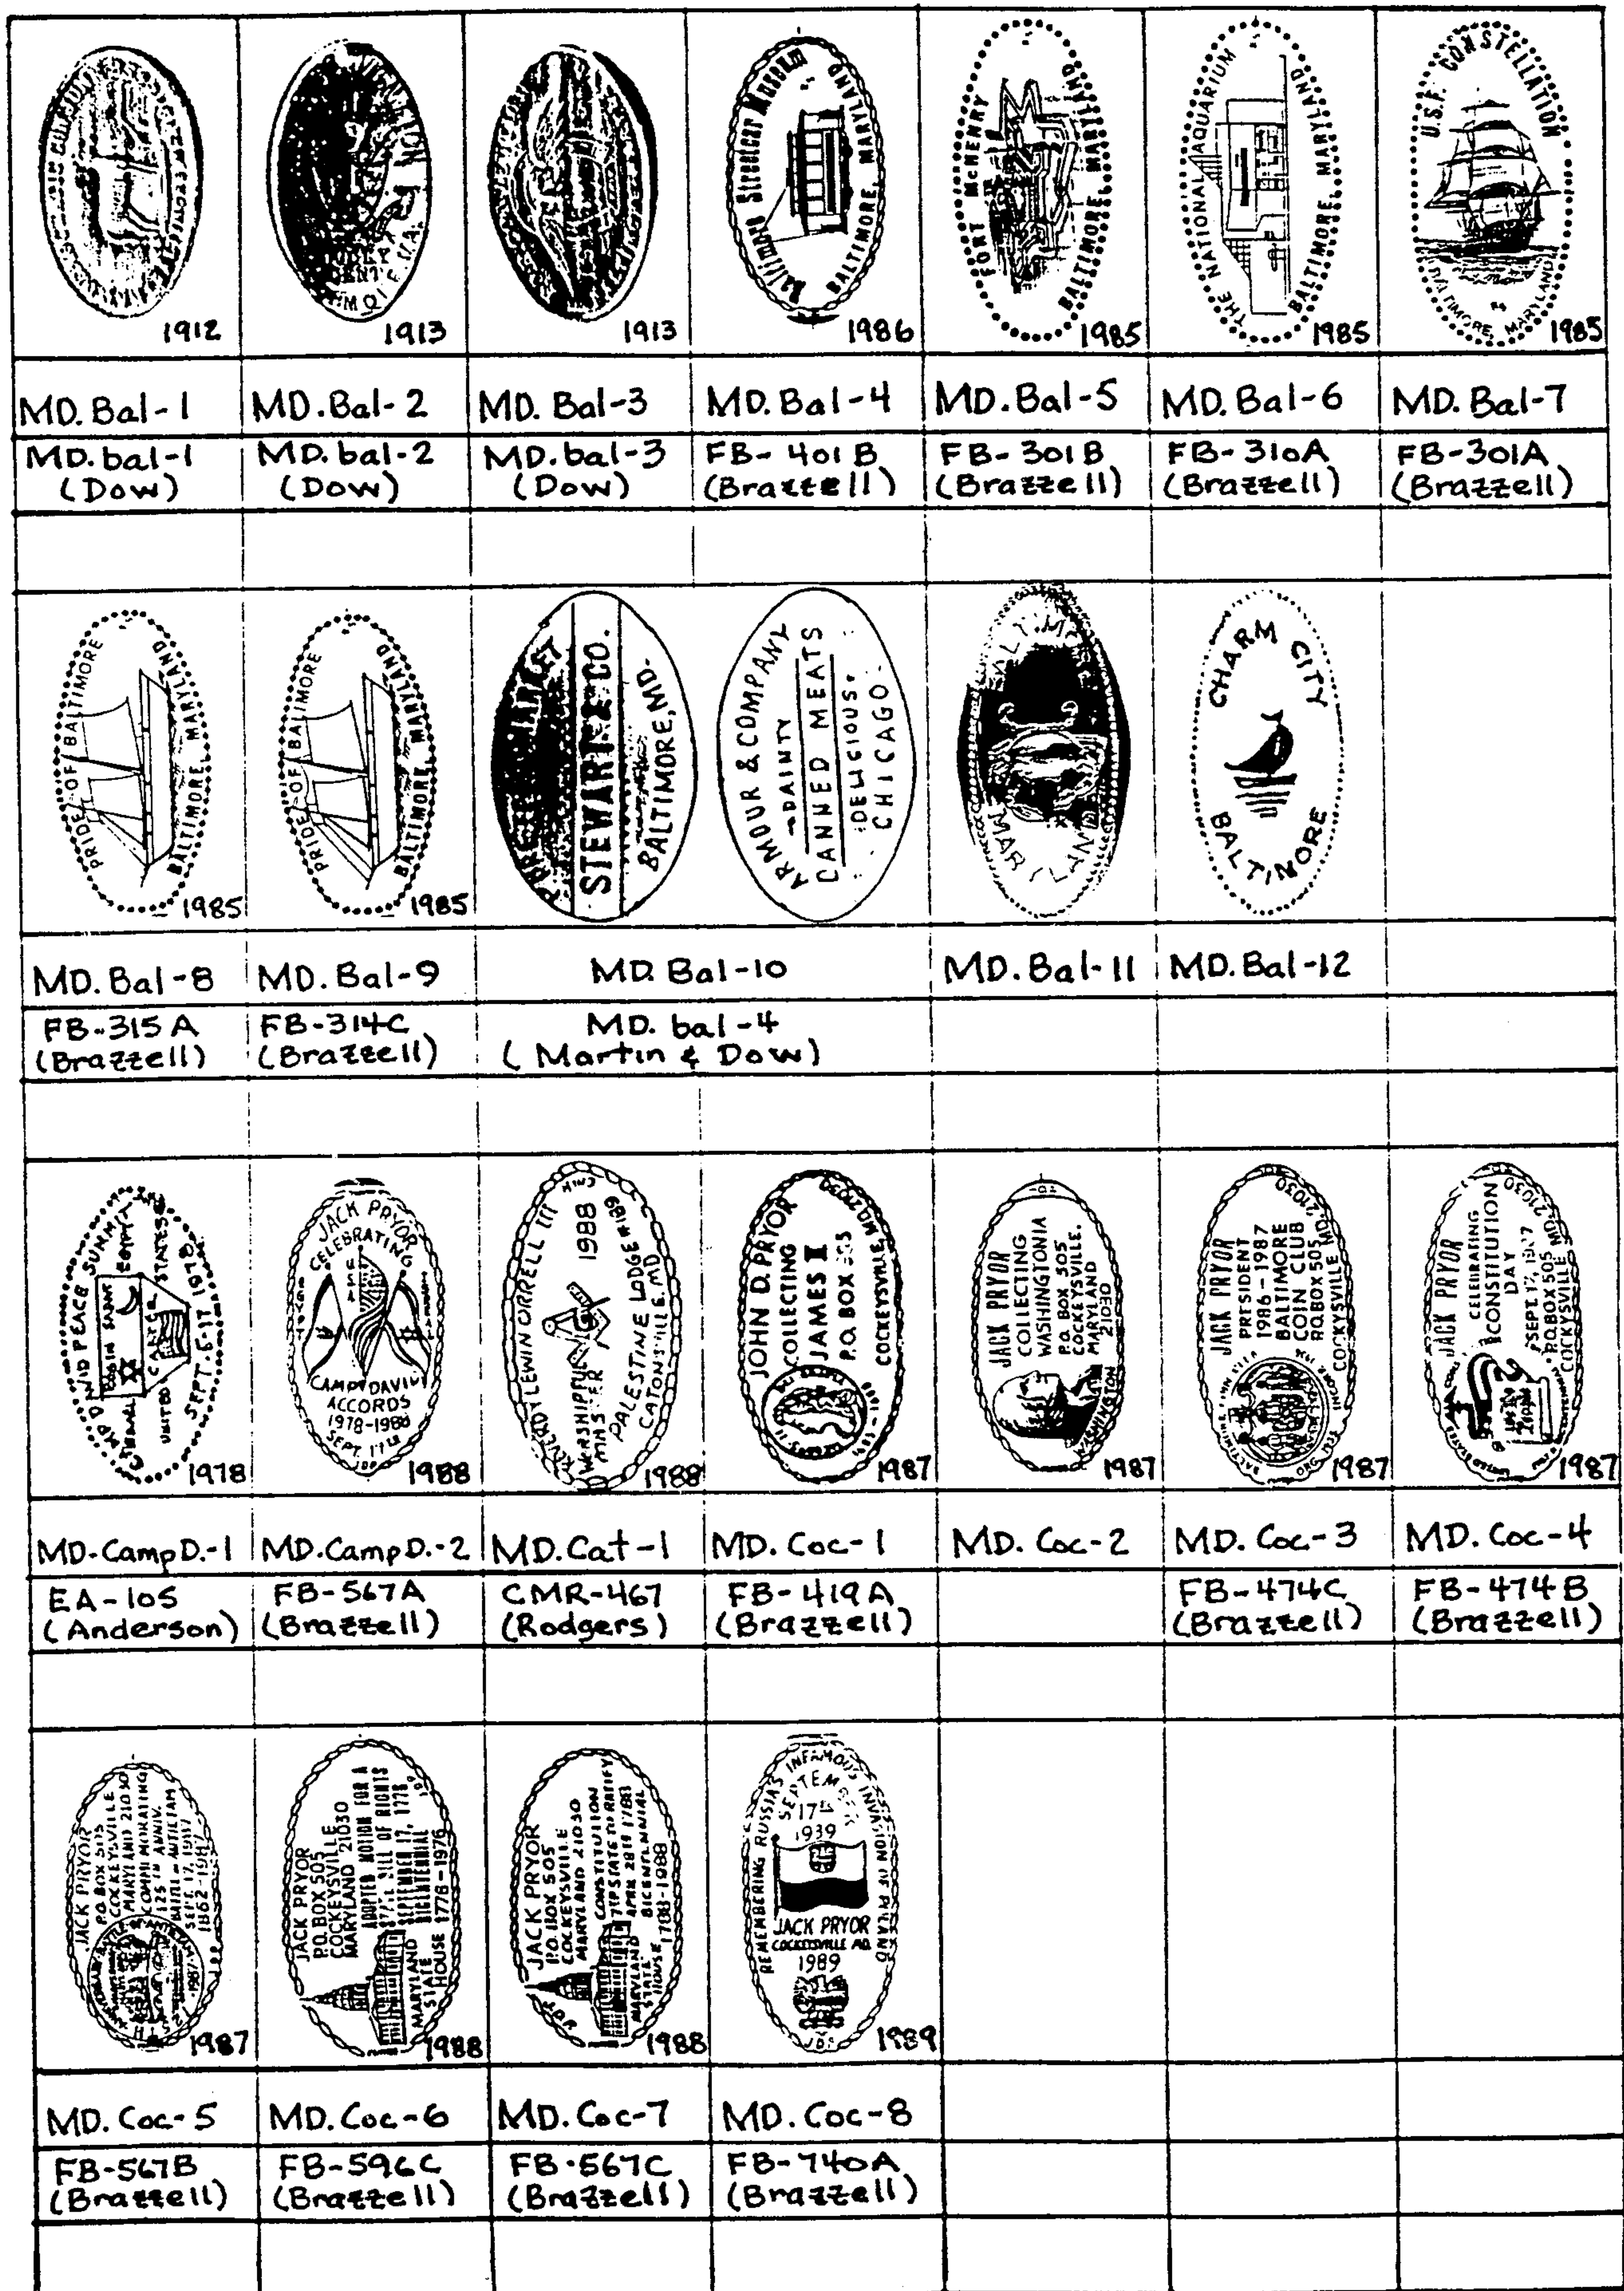 1912
1913
1913
Baltimore Streetcar Museum
BALTIMORE, MARYLAND
1986
FORT McHENRY
BALTIMORE, MARYLAND
1985
THE NATIONAL AQUARIUM
BALTIMORE, MARYLAND
1985
U.S.F. CONSTELLATION
BALTIMORE, MARYLAND
1985
MD. Bal-1
MD. Bal-2
MD. Bal-3
MD. Bal-4
MD. Bal-5
MD. Bal-6
MD. Bal-7
MD. bal-1
(Dow)
MD. bal-2
(Dow)
MD. bal-3
(Dow)
FB-401B
(Brazzell)
FB-301B
(Brazzell)
FB-310A
(Brazzell)
FB-301A
(Brazzell)
PRIDE OF BALTIMORE
BALTIMORE, MARYLAND
1985
PRIDE OF BALIMORE
BALTIMORE, MARYLAND
1985
STEWART & CO.
BALTIMORE, MD.
ARMOUR & COMPANY
DAINTY
CANNED MEATS
DELICIOUS
CHICAGO
MARYLAND
CHARM CITY
BALTIMORE
MD. Bal-8
MD. Bal-9
MD. Bal-10
MD. Bal-11
MD. Bal-12
FB-315A
(Brazzell)
FB-314C
(Brazzell)
MD. bal-4
(Martin & Dow)
CAMP DAVID PEACE SUMMIT
EGYPT
BEGIN SADAT
ISRAEL
CARTER
UNITED STATES
SEPT. 5-17 1978
1978
JACK PRYOR
CELEBRATING
CAMP DAVID
ACCORDS
1978-1988
SEPT. 17th
JDP
1988
LEWIN CORRELL III
1988
WORSHIPFUL
MASTER
PALESTINE LODGE #189
CATONSVILLE, MD
1988
JOHN D. PRYOR
COLLECTING
JAMES II
P.O. BOX 505
COCKEYSVILLE, MD 21030
1987
JACK PRYOR
COLLECTING
WASHINGTONIA
P.O. BOX 505
COCKEYSVILLE.
MARYLAND
21030
WASHINGTON
1987
JACK PRYOR
PRESIDENT
1986-1987
BALTIMORE
COIN CLUB
P.O. BOX 505
COCKYSVILLE MD. 21030
1987
JACK PRYOR
CELEBRATING
CONSTITUTION
DAY
SEPT. 17, 1987
P.O. BOX 505
COCKYSVILLE MD. 21030
1987
MD. CampD.-1
MD. CampD.-2
MD. Cat-1
MD. Coc-1
MD. Coc-2
MD. Coc-3
MD. Coc-4
EA-105
(Anderson)
FB-567A
(Brazzell)
CMR-467
(Rodgers)
FB-419A
(Brazzell)
FB-474C
(Brazzell)
FB-474B
(Brazzell)
JACK PRYOR
P.O. BOX 505
COCKEYSVILLE
MARYLAND 21030
COMMEMORATING
125 TH ANNIV.
BATTLE - ANTIETAM
SEPT. 17, 1987
1862-1987
1987
JACK PRYOR
P.O. BOX 505
COCKEYSVILLE
MARYLAND 21030
ADOPTED MOTION FOR A
BILL OF RIGHTS
SEPTEMBER 17, 1776
MARYLAND BICENTENNIAL
STATE
HOUSE 1776-1976
1988
JACK PRYOR
P.O. BOX 505
COCKEYSVILLE
MARYLAND 21030
CONSTITUTION
7TH STATE TO RATIFY
APRIL 28TH 1788
MARYLAND BICENTENNIAL
STATE
HOUSE 1788-1988
1988
REMEMBERING RUSSIA'S INFAMOUS INVASION OF POLAND
SEPTEMBER
17th
1939
JACK PRYOR
COCKEYSVILLE MD.
1989
JDP
1989
MD. Coc-5
MD. Coc-6
MD. Coc-7
MD. Coc-8
FB-567B
(Brazzell)
FB-596C
(Brazzell)
FB-567C
(Brazzell)
FB-740A
(Brazzell)